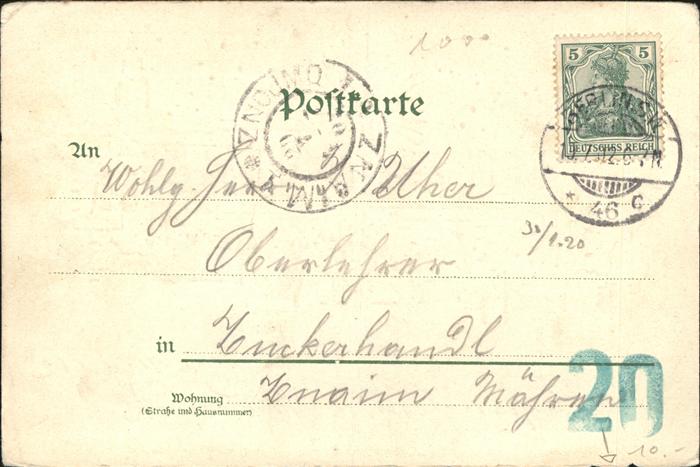 1000
5 5
DEUTSCHES REICH
Postkarte
ZNOJMO ZNAIM
BERLIN S.W.
46 c
An
Wohlg. Herr Uher
31/1.20
Oberlehrer
in Zuckerhandl
20
Wohnung
(Straße und Hausnummer)
Znaim Mähren
10.-